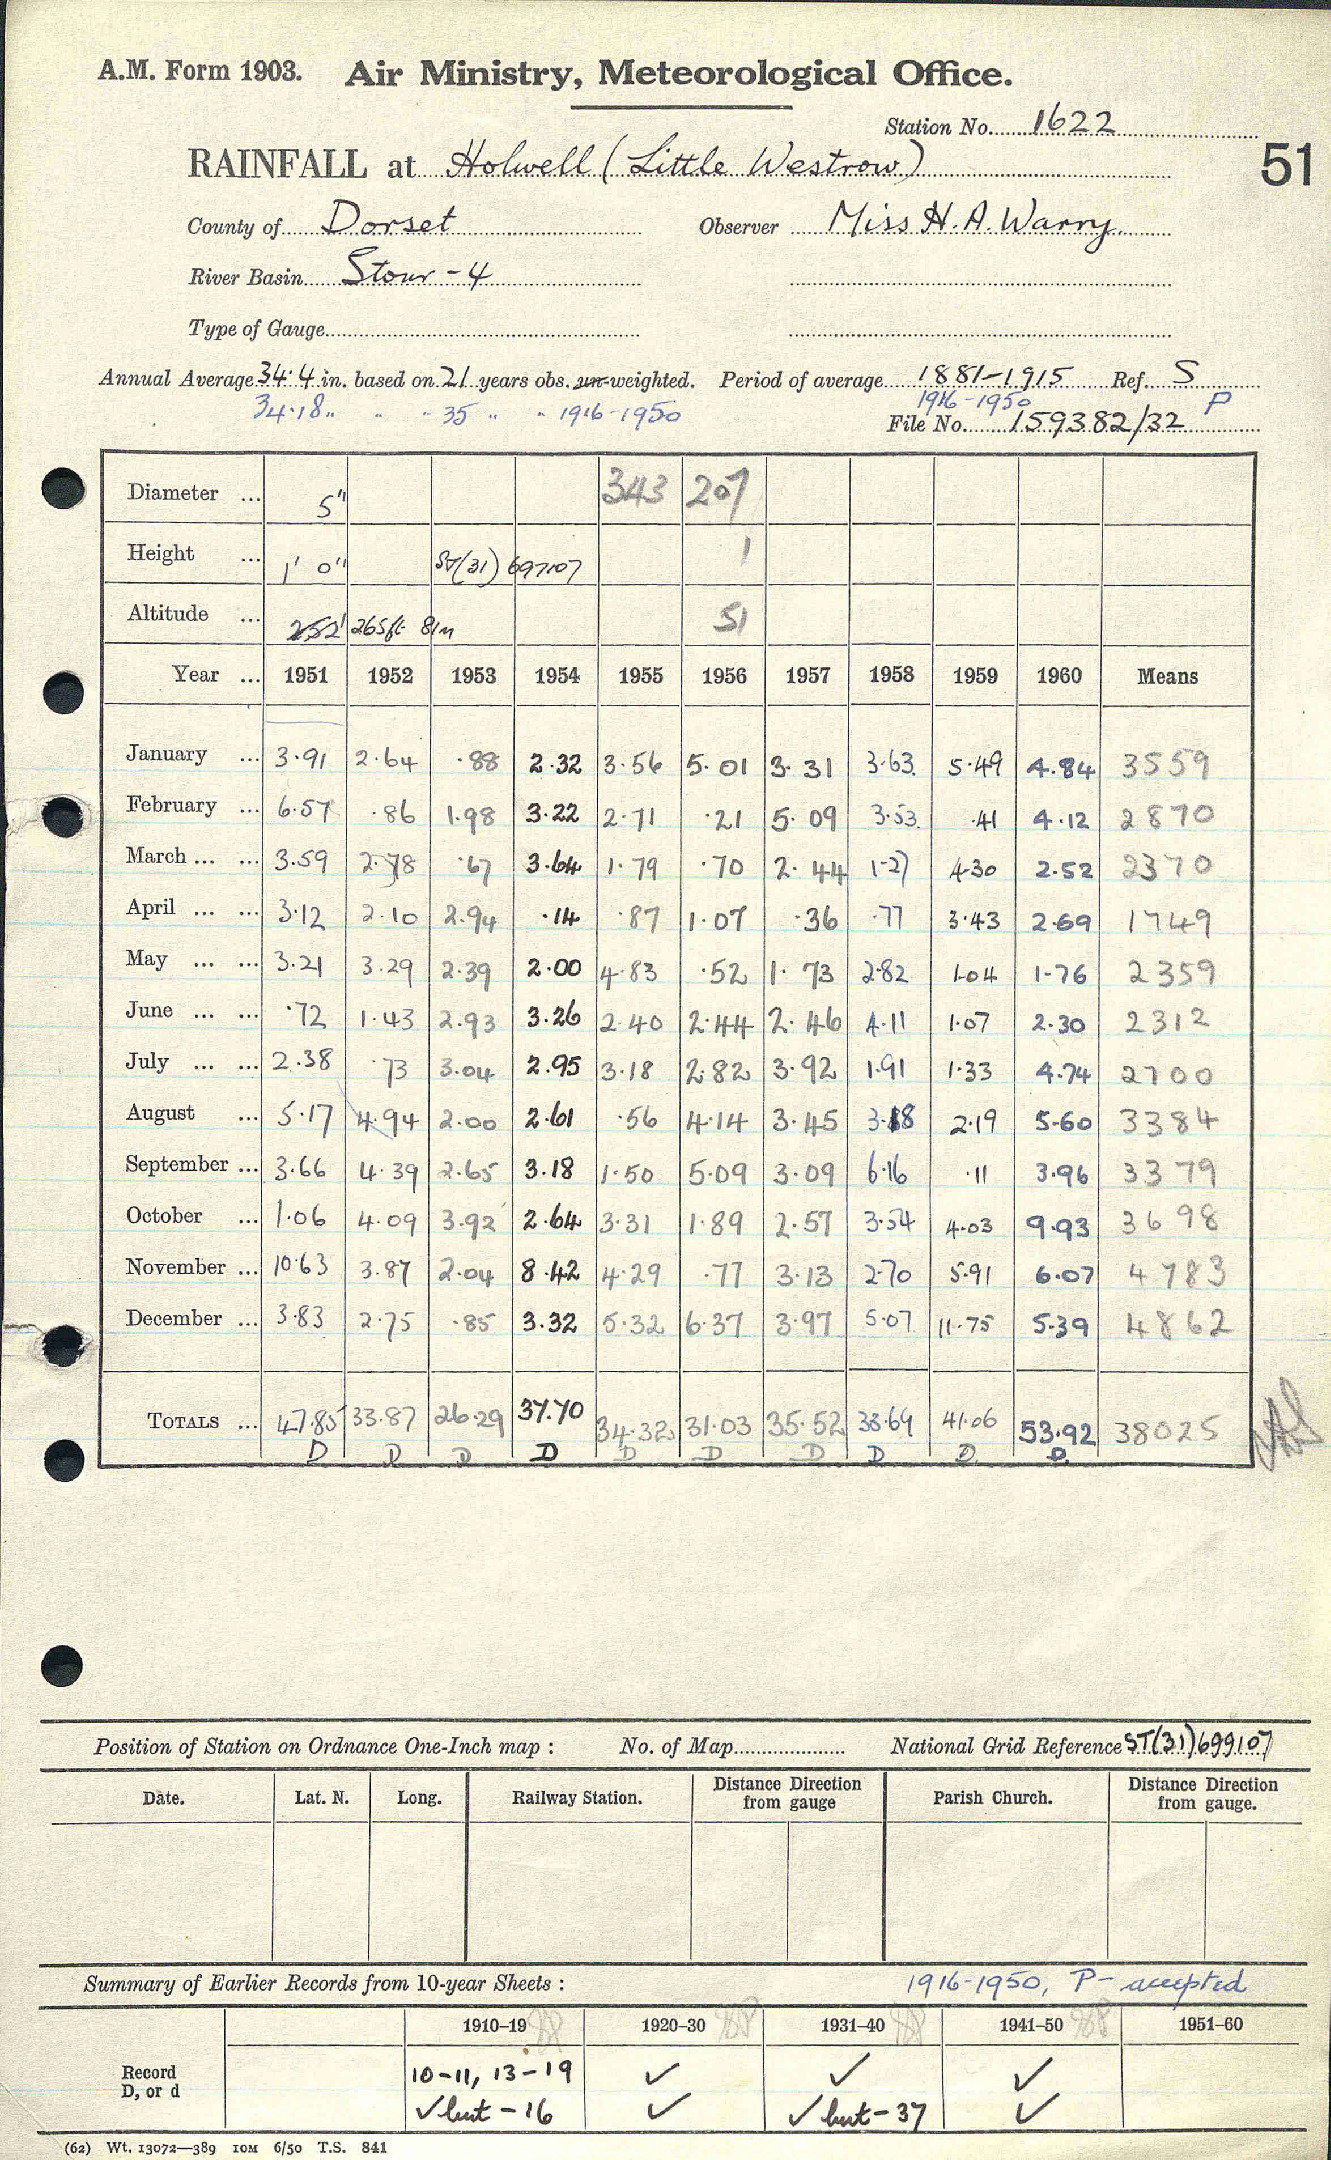 A.M. Form 1903. Air Ministry, Meteorological Office.
Station No. 1622
RAINFALL at Holwell (Little Westrow) 51
County of Dorset Observer Miss H. A. Warry.
River Basin Stour - 4
Type of Gauge
Annual Average 34.4 in. based on 21 years obs. un-weighted. Period of average 1881-1915 Ref. S
34.18 " " " 35 " " " 1916-1950 1916-1950 P
File No. 159382/32
Diameter ... 5" 343 207
Height ... 1' 0" ST(31) 697107 1
Altitude ... 252' 265ft 81m 51
Year ... 1951 1952 1953 1954 1955 1956 1957 1958 1959 1960 Means
January ... 3.91 2.64 .88 2.32 3.56 5.01 3.31 3.63 5.49 4.84 3559
February ... 6.57 .86 1.98 3.22 2.71 .21 5.09 3.53 .41 4.12 2870
March ... ... 3.59 2.78 .67 3.64 1.79 .70 2.44 1.27 4.30 2.52 2370
April ... ... 3.12 2.10 2.94 .14 .87 1.07 .36 .77 3.43 2.69 1749
May ... ... 3.21 3.29 2.39 2.00 4.83 .52 1.73 2.82 1.04 1.76 2359
June ... ... .72 1.43 2.93 3.26 2.40 2.44 2.46 4.11 1.07 2.30 2312
July ... ... 2.38 .73 3.04 2.95 3.18 2.82 3.92 1.91 1.33 4.74 2700
August ... 5.17 4.94 2.00 2.61 .56 4.14 3.45 3.18 2.19 5.60 3384
September ... 3.66 4.39 2.65 3.18 1.50 5.09 3.09 6.16 .11 3.96 3379
October ... 1.06 4.09 3.92 2.64 3.31 1.89 2.57 3.54 4.03 9.93 3698
November ... 10.63 3.87 2.04 8.42 4.29 .77 3.13 2.70 5.91 6.07 4783
December ... 3.83 2.75 .85 3.32 5.32 6.37 3.97 5.07 11.75 5.39 4862
TOTALS ... 47.85 33.87 26.29 37.70 34.32 31.03 35.52 38.69 41.06 53.92 38025
D D D D D D D D D D
Position of Station on Ordnance One-Inch map : No. of Map National Grid Reference ST(31)699107
Date. Lat. N. Long. Railway Station. Distance Direction from gauge Parish Church. Distance Direction from gauge.
Summary of Earlier Records from 10-year Sheets : 1916-1950, P- accepted
1910-19 1920-30 1931-40 1941-50 1951-60
Record 10-11, 13-19 ✓ ✓ ✓
D, or d ✓ but -16 ✓ ✓ but -37 ✓
(62) Wt. 13072—389 10M 6/50 T.S. 841